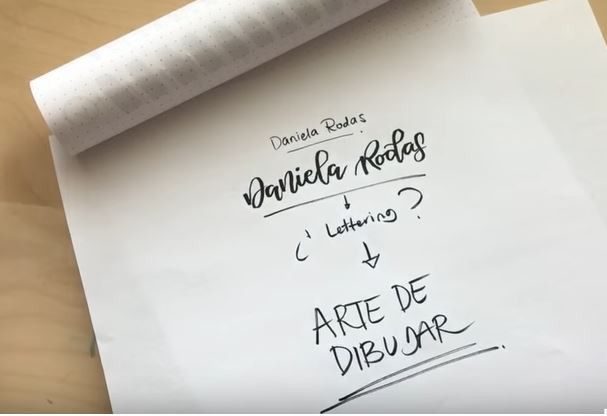 Daniela Rodas
Daniela Rodas
¿ Lettering ?
ARTE DE
DIBUJAR